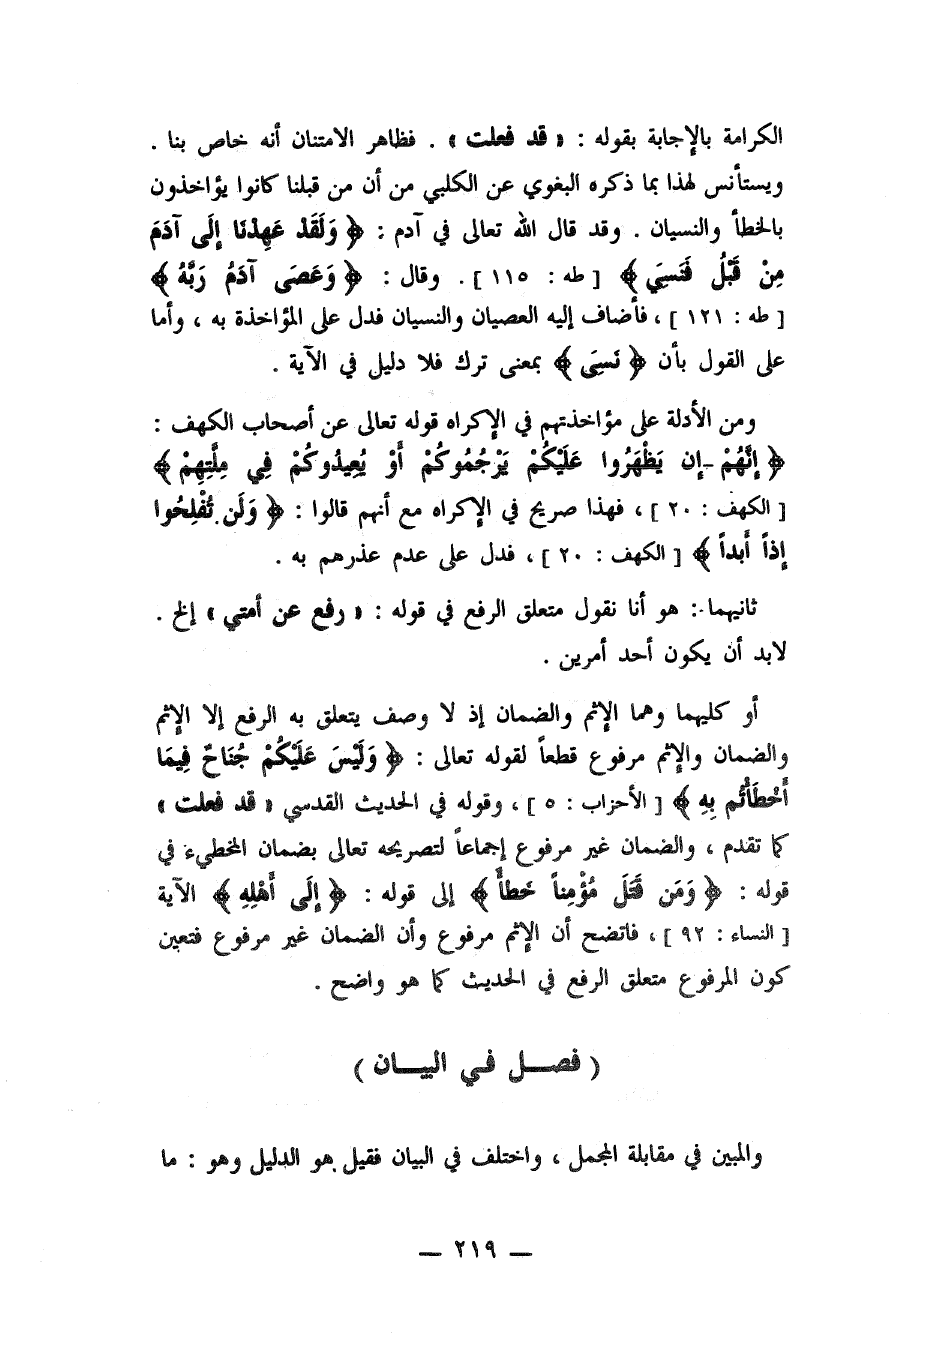 الكرامة بالإجابة بقوله : « قد فعلت » . فظاهر الامتنان أنه خاص بنا .
ويستأنس لهذا بما ذكره البغوي عن الكلبي من أن من قبلنا كانوا يؤاخذون
بالخطأ والنسيان . وقد قال الله تعالى في آدم : ﴿ وَلَقَدْ عَهِدْنَا إِلَى آدَمَ
مِنْ قَبْلُ فَنَسِيَ ﴾ [ طه : ١١٥ ] . وقال : ﴿ وَعَصَى آدَمُ رَبَّهُ ﴾
[ طه : ١٢١ ] ، فأضاف إليه العصيان والنسيان فدل على المؤاخذة به ، وأما
على القول بأن ﴿ نَسِيَ ﴾ بمعنى ترك فلا دليل في الآية .
ومن الأدلة على مؤاخذتهم في الإكراه قوله تعالى عن أصحاب الكهف :
﴿ إِنَّهُمْ إِن يَظْهَرُوا عَلَيْكُمْ يَرْجُمُوكُمْ أَوْ يُعِيدُوكُمْ فِي مِلَّتِهِمْ ﴾
[ الكهف : ٢٠ ] ، فهذا صريح في الإكراه مع أنهم قالوا : ﴿ وَلَن تُفْلِحُوا
إِذاً أَبداً ﴾ [ الكهف : ٢٠ ] ، فدل على عدم عذرهم به .
ثانيهما : هو أنا نقول متعلق الرفع في قوله : « رفع عن أمتي » إلخ .
لابد أن يكون أحد أمرين .
أو كليهما وهما الإثم والضمان إذ لا وصف يتعلق به الرفع إلا الإثم
والضمان والإثم مرفوع قطعاً لقوله تعالى : ﴿ وَلَيْسَ عَلَيْكُمْ جُنَاحٌ فِيمَا
أَخْطَأْتُم بِهِ ﴾ [ الأحزاب : ٥ ] ، وقوله في الحديث القدسي « قد فعلت »
كما تقدم ، والضمان غير مرفوع إجماعاً لتصريحه تعالى بضمان المخطيء في
قوله : ﴿ وَمَن قَتَلَ مُؤْمِناً خَطأً ﴾ إلى قوله : ﴿ إِلَى أَهْلِهِ ﴾ الآية
[ النساء : ٩٢ ] ، فاتضح أن الإثم مرفوع وأن الضمان غير مرفوع فتعين
كون المرفوع متعلق الرفع في الحديث كما هو واضح .
( فصـــل فـي البيـــان )
والمبين في مقابلة المجمل ، واختلف في البيان فقيل هو الدليل وهو : ما
— ٢١٩ —